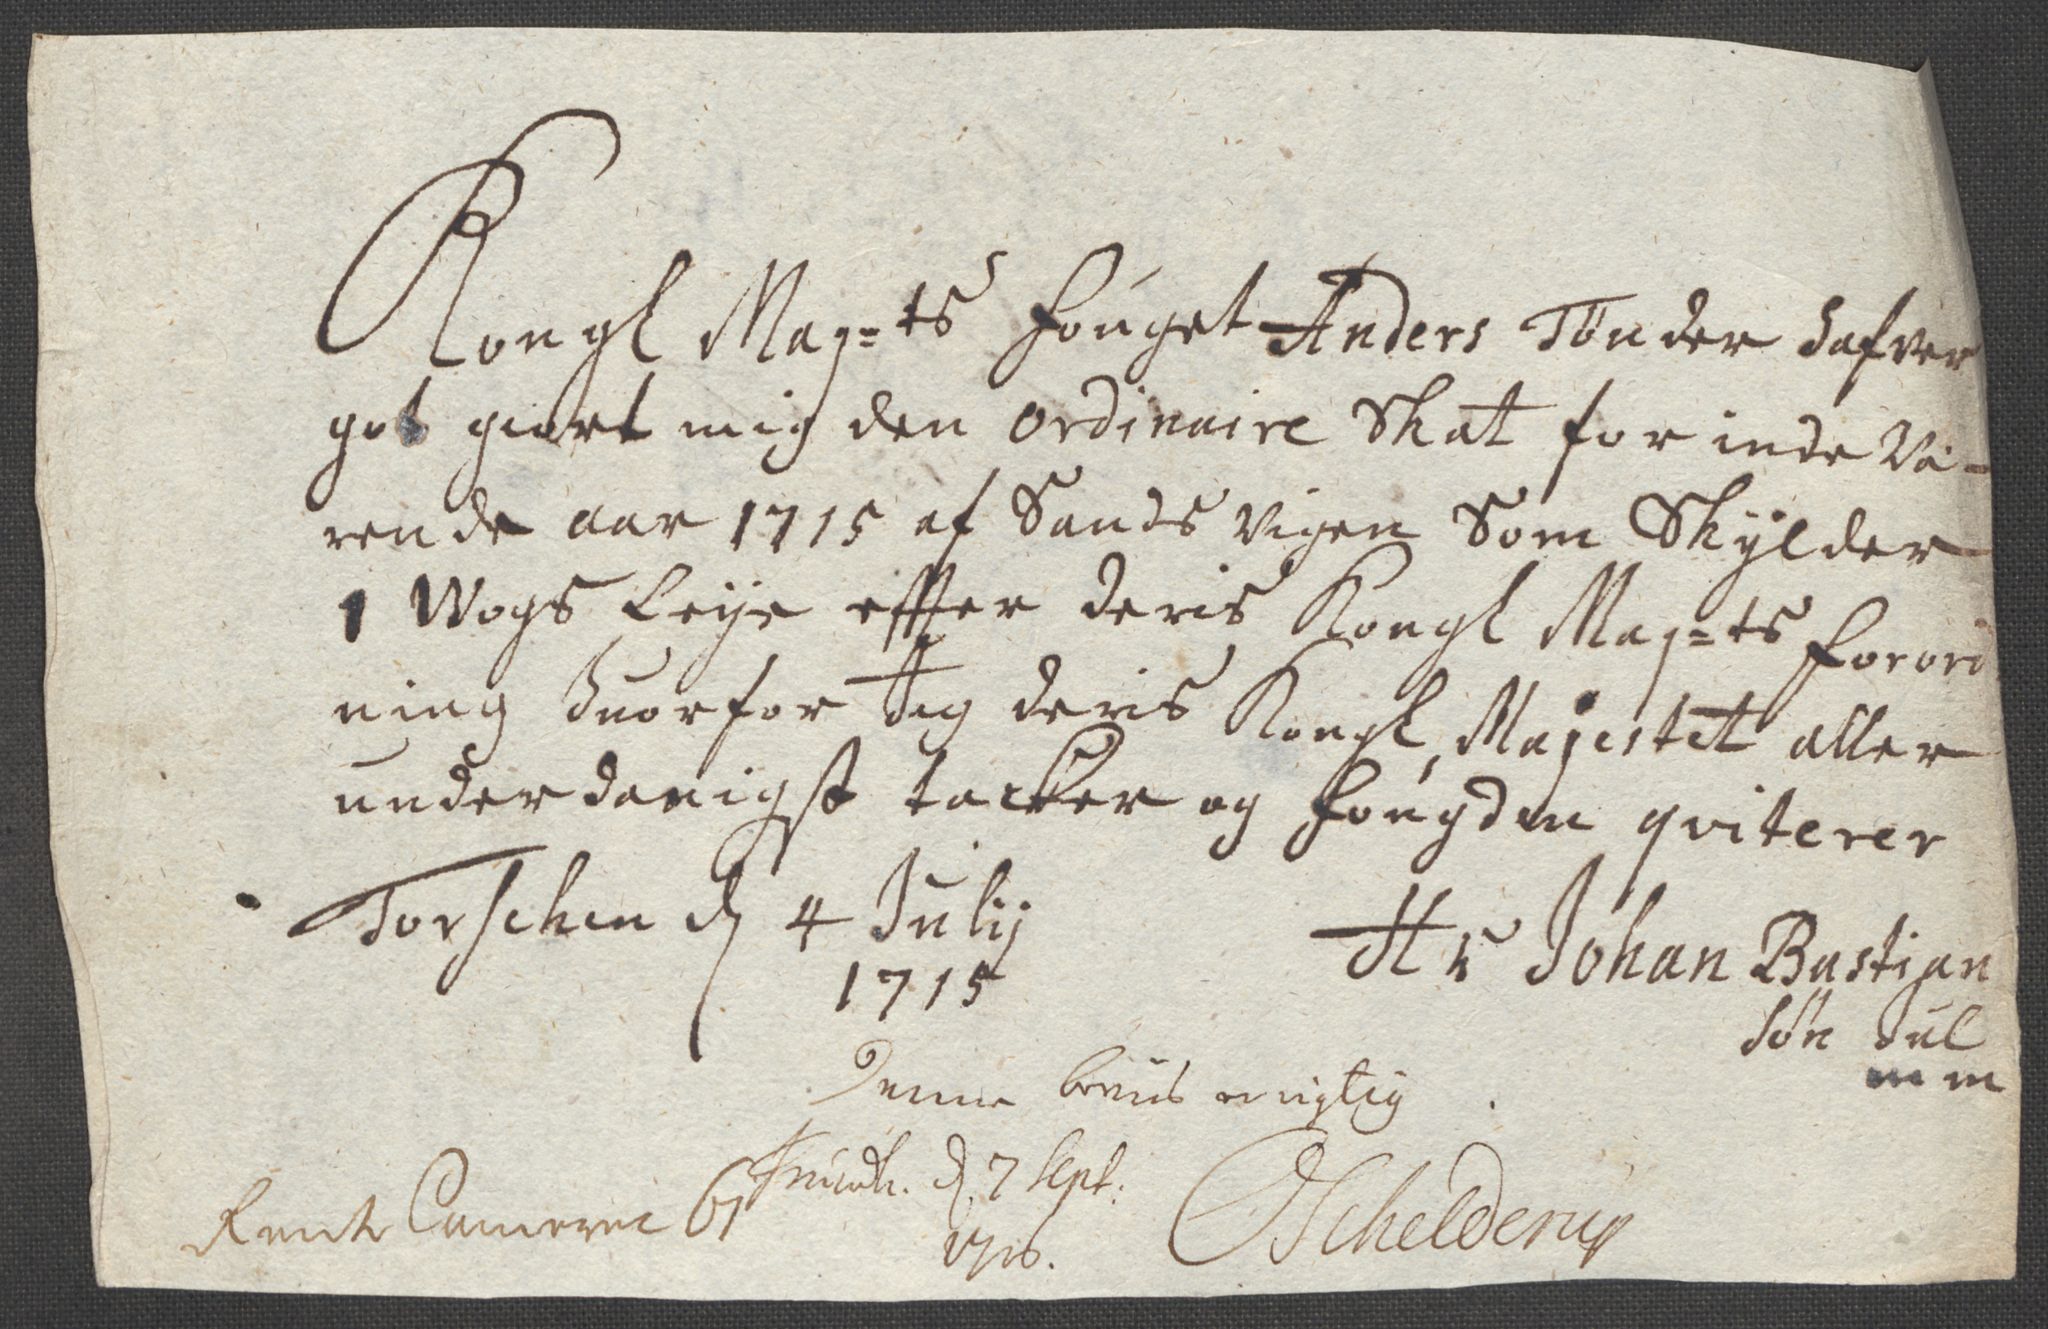 Kongl Maj=ts fouget Anders Tønder hafver
got giort mig den ordinaire Skat for inde Væ-
rende aar 1715 af Sandsvigen Som Skylder
1 Wogs Leije effter deris Kongl Maj=ts forord
ning huorfor Jeg deris Kongl Majestet aller
underdanigst tacker og fougden qviterer
Torschen d 4 Julij
1715
Hr Johan Bastian
Søn
m m
Denne beviis er rigtig
Trundh. d. 7 Sept:
1715.
Rente Cammeret
Schelderup